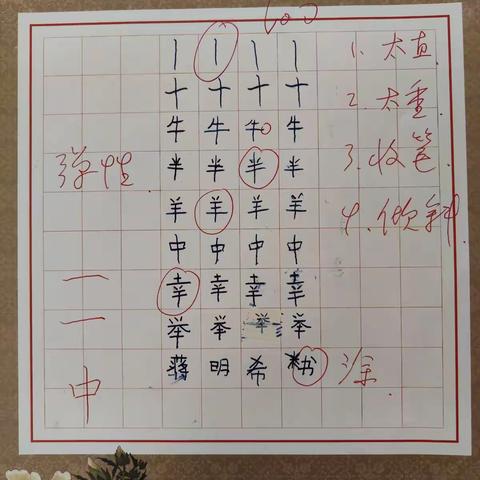 丨 丨 丨 丨 1. 太直
十 十 十 十
2. 太重
牛 牛 牛 牛
弹性 半 半 半 半 3. 收笔
羊 羊 羊 羊 4. 倾斜
中 中 中 中
一 幸 幸 幸 幸
一 举 举 举 举
明 希 涂
中